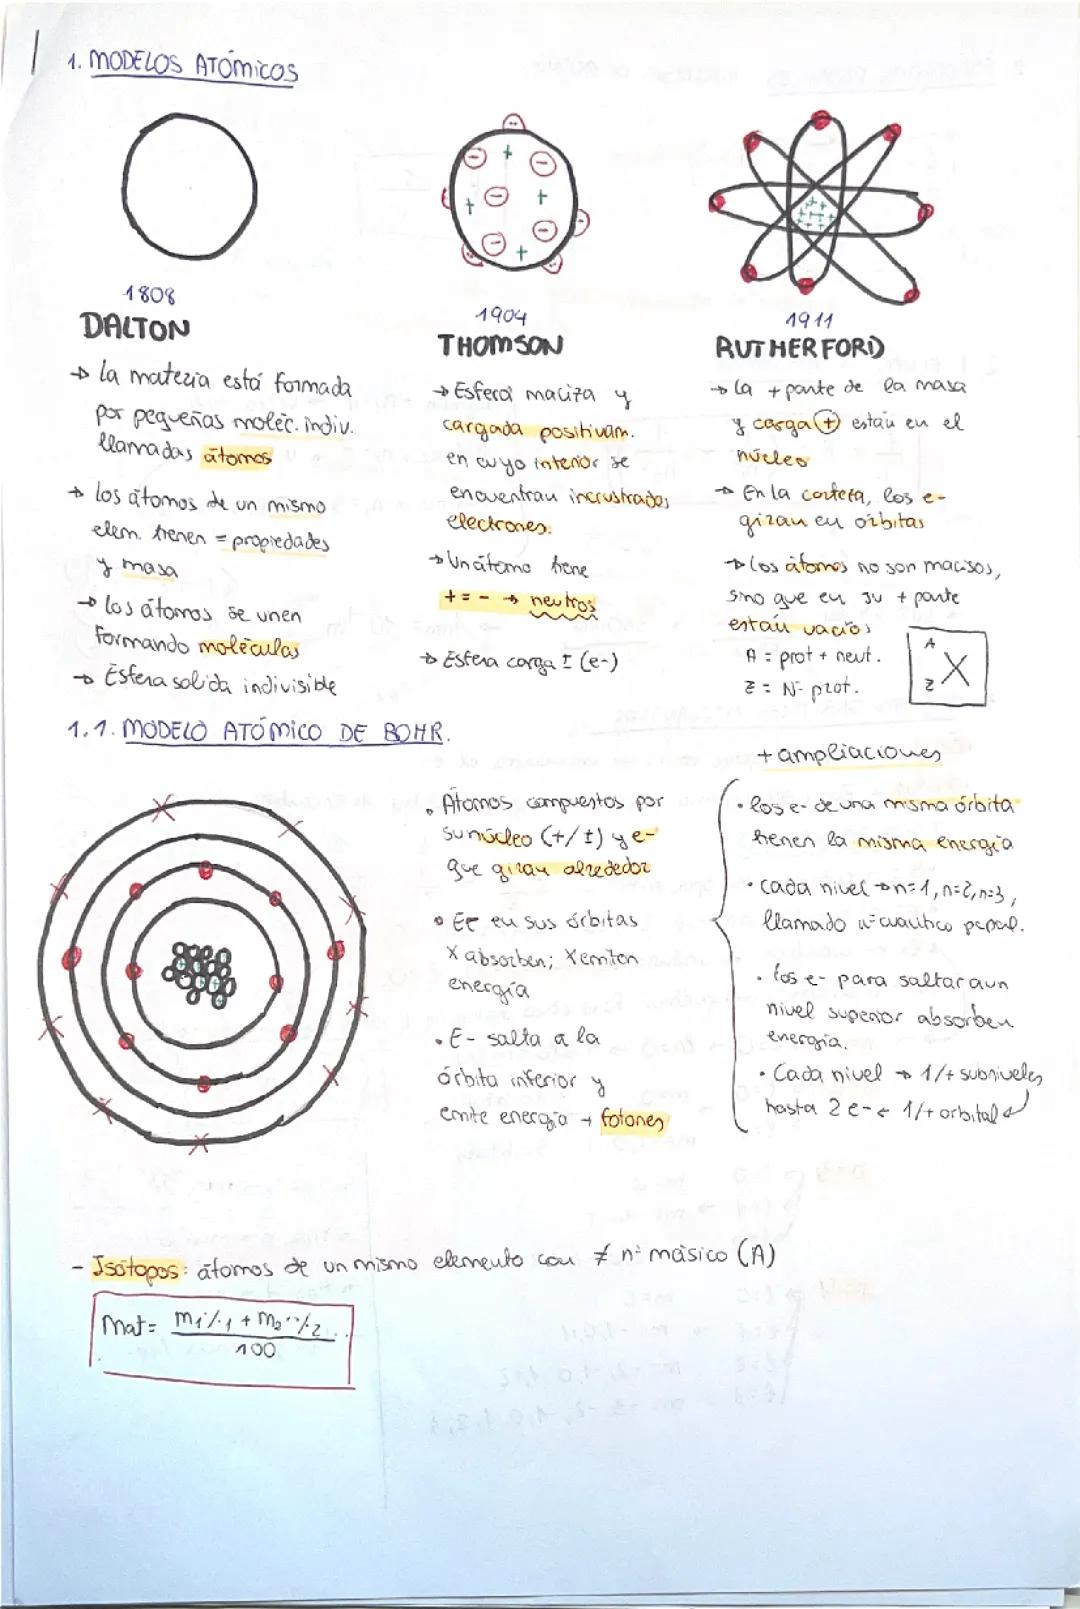 1. MODELOS ATÓMICOS
1808
DALTON
→ la materia está formada
por pequeñas moléc. indiv.
llamadas átomos
→ los átomos de un mismo
elem. tienen = propiedades
y masa
→ los átomos se unen
formando moléculas
→ Esfera solida indivisible
1904
THOMSON
→ Esfera maciza y
cargada positivam.
en cuyo interior se
encuentran incrustrados
electrones.
→ Un átomo tiene
+ = - → neutros
→ Esfera carga ± (e-)
1911
RUTHERFORD
→ la + parte de la masa
y carga + están en el
núcleo
→ En la corteza, los e-
giran en órbitas
→ los átomos no son macisos,
sino que en su + parte
están vacíos
A = prot + neut.
Z = Nº prot.
A
Z X
1.1. MODELO ATÓMICO DE BOHR.
• Átomos compuestos por
su núcleo (+/±) y e-
que giran alrededor
• E- en sus órbitas
X absorben; X emiten
energía
• E- salta a la
órbita inferior y
emite energía → fotones
+ ampliaciones
• los e- de una misma órbita
tienen la misma energía
• cada nivel → n=1, n=2, n=3,
llamado nº cuántico ppal.
• los e- para saltar a un
nivel superior absorben
energía.
• Cada nivel → 1/+ subniveles
hasta 2 e- ← 1/+ orbital
- Isótopos: átomos de un mismo elemento con ≠ nº másico (A)
Mat = m₁·%₁ + m₂·%₂...
100